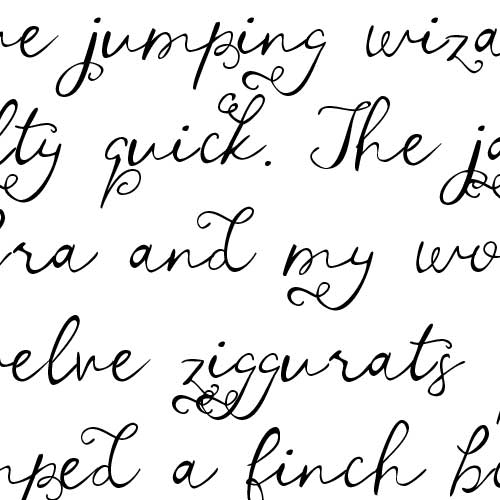 ve jumping wiza
lty quick. The ja
ra and my wo
velve ziggurats
mped a finch b